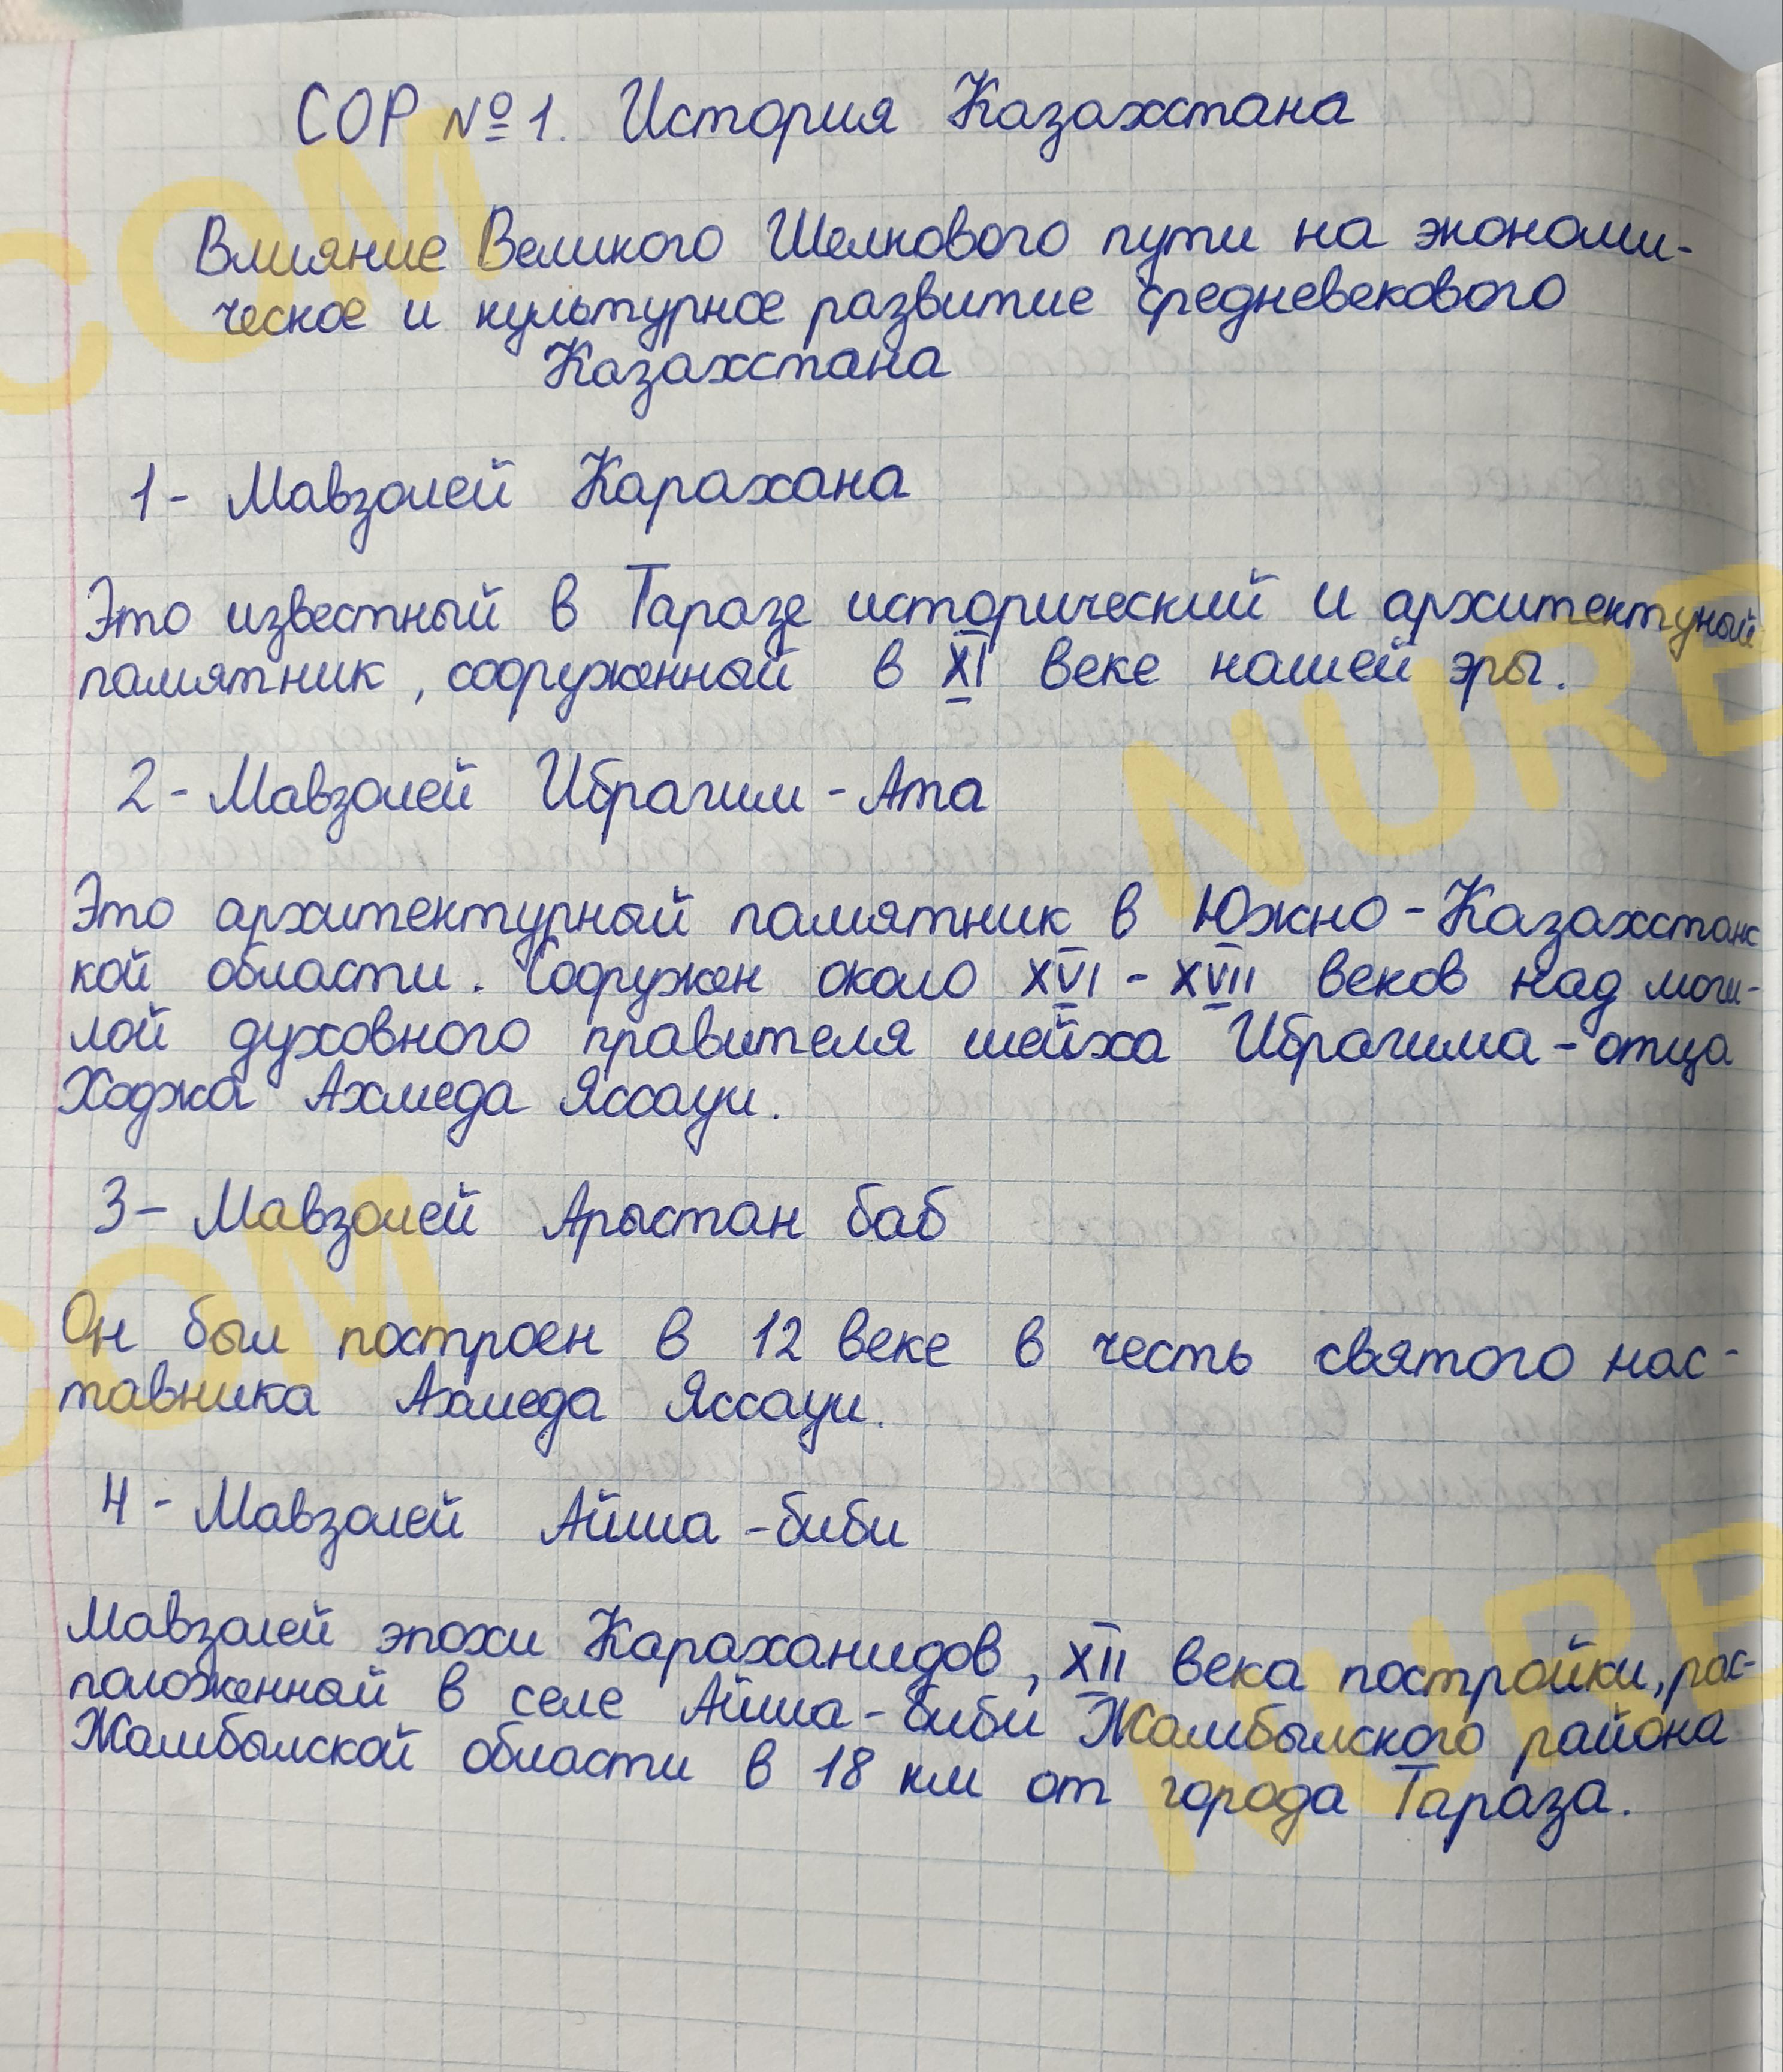 СОР №1. История Казахстана
Влияние Великого Шелкового пути на экономи-
ческое и культурное развитие средневекового
Казахстана
1- Мавзолей Карахана
Это известный в Таразе исторический и архитектуный
памятник, сооруженный в XI веке нашей эры.
2- Мавзолей Ибрагим-Ата
Это архитектурный памятник в Южно-Казахстанс
кой области. Сооружен около XVI - XVII веков над моги-
лой духовного правителя шейха Ибрагима-отца
Ходжа Ахмеда Яссауи.
3- Мавзолей Арыстан баб
Он был построен в 12 веке в честь святого нас-
тавника Ахмеда Яссауи.
4- Мавзолей Айша-биби
Мавзолей эпохи Караханидов, XII века постройки, рас-
положенной в селе Айша-биби Жамбылского района
Жамбылской области в 18 км от города Тараза.
COM
NURB
COM
NURB